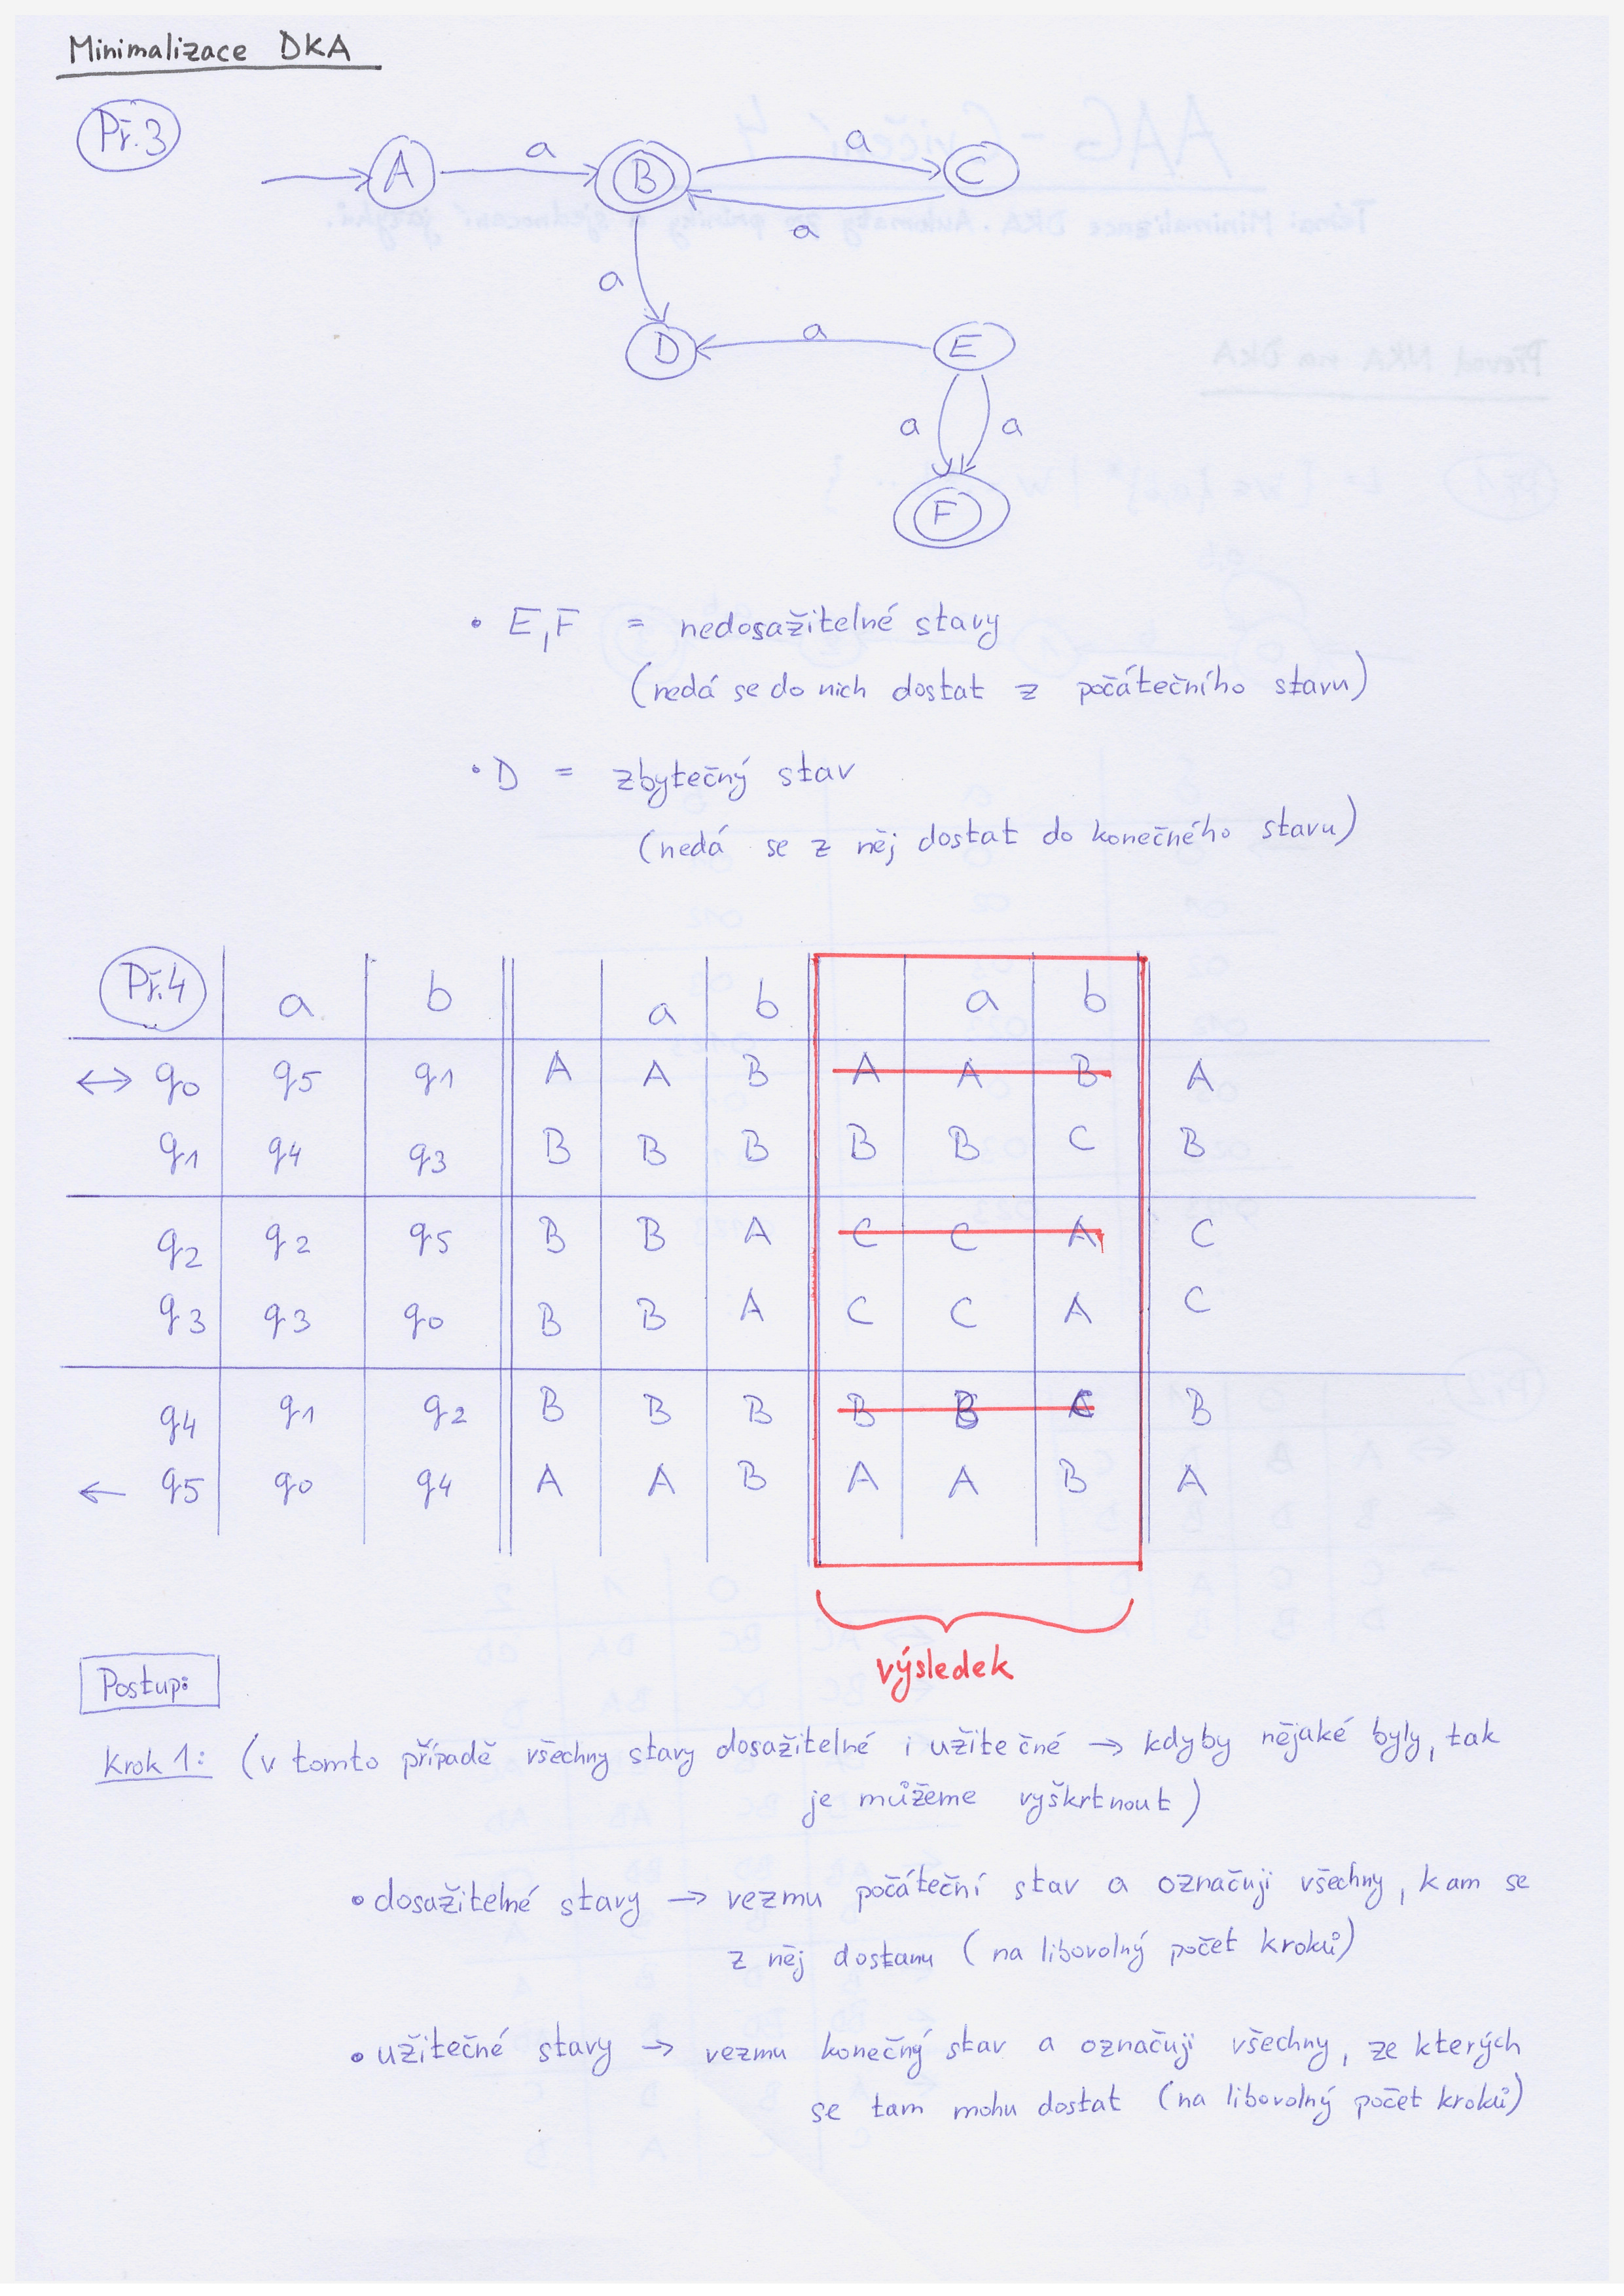 Minimalizace DKA
Př.3
A a B a C
a
a
D a E
a a
F
• E,F = nedosažitelné stavy
(nedá se do nich dostat z počátečního stavu)
• D = zbytečný stav
(nedá se z něj dostat do konečného stavu)
Př.4 a b a b a b
↔ q0 q5 q1 A A B A A B A
q1 q4 q3 B B B B B C B
q2 q2 q5 B B A C C A C
q3 q3 q0 B B A C C A C
q4 q1 q2 B B B B B C B
← q5 q0 q4 A A B A A B A
výsledek
Postup:
Krok 1: (v tomto případě všechny stavy dosažitelné i užitečné → kdyby nějaké byly, tak
je můžeme vyškrtnout)
• dosažitelné stavy → vezmu počáteční stav a označuji všechny, kam se
z něj dostanu (na libovolný počet kroků)
• užitečné stavy → vezmu konečný stav a označuji všechny, ze kterých
se tam mohu dostat (na libovolný počet kroků)